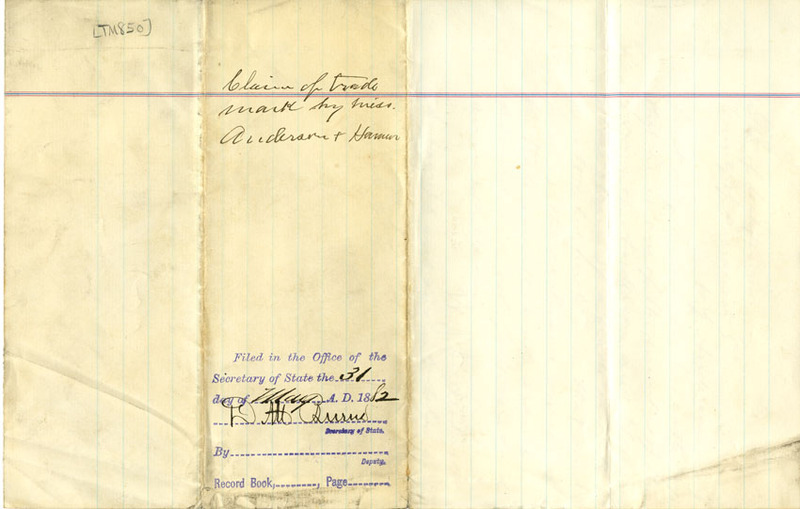 [TM850]
Claim of trade
mark by
Anderson +
Filed in the Office of the
Secretary of State the 31
day of May A. D. 1882
Secretary of State.
By
Deputy.
Record Book, , Page